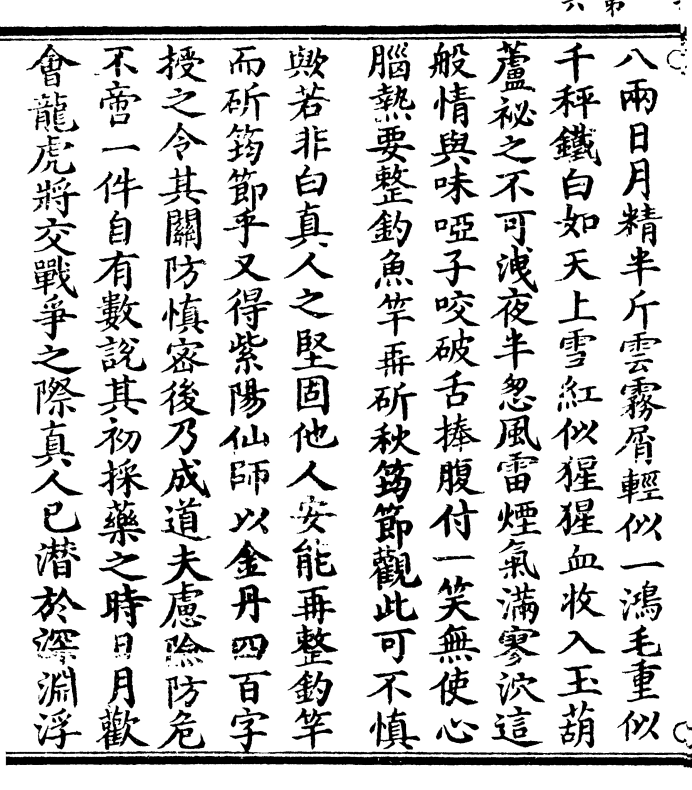 八兩日月精半斤雲霧屑輕似一鴻毛重似
千秤鐵白如天上雪紅似猩猩血收入玉葫
蘆祕之不可洩夜半忽風雷煙氣滿寥泬這
般情與味啞子咬破舌捧腹付一笑無使心
腦熱要整釣魚竿再斫秋筠節觀此可不慎
歟若非白真人之堅固他人安能再整釣竿
而斫筠節乎又得紫陽仙師以金丹四百字
授之令其關防慎密後乃成道夫慮險防危
不啻一件自有數說其初採藥之時日月歡
會龍虎將交戰爭之際真人已潛於深淵浮